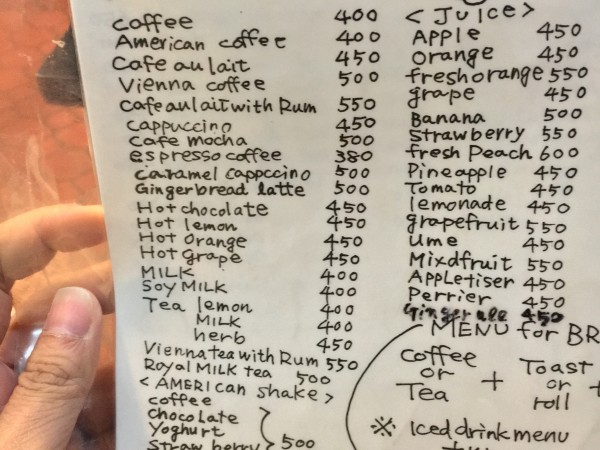 coffee 400
American coffee 400
Cafe au lait 450
Vienna coffee 500
Cafe au lait with Rum 550
cappuccino 450
Cafe mocha 500
espresso coffee 380
Caramel cappccino 500
Gingerbread latte 500
Hot chocolate 450
Hot lemon 450
Hot Orange 450
Hot grape 450
MILK 400
Soy MILK 400
Tea lemon 400
MILK 400
herb 450
Vienna tea with Rum 550
Royal MILK tea 500
<AMERICan shake>
coffee
Chocolate
Yoghurt
Straw berry 500
<JUICE>
Apple 450
orange 450
fresh orange 550
grape 450
Banana 500
Strawberry 550
fresh Peach 600
Pineapple 450
Tomato 450
lemonade 450
grapefruit 550
Ume 450
Mixdfruit 550
Appletiser 450
Perrier 450
Ginger ale 450
MENU for BR
Coffee or Tea + Toast or roll +
※ Iced drink menu